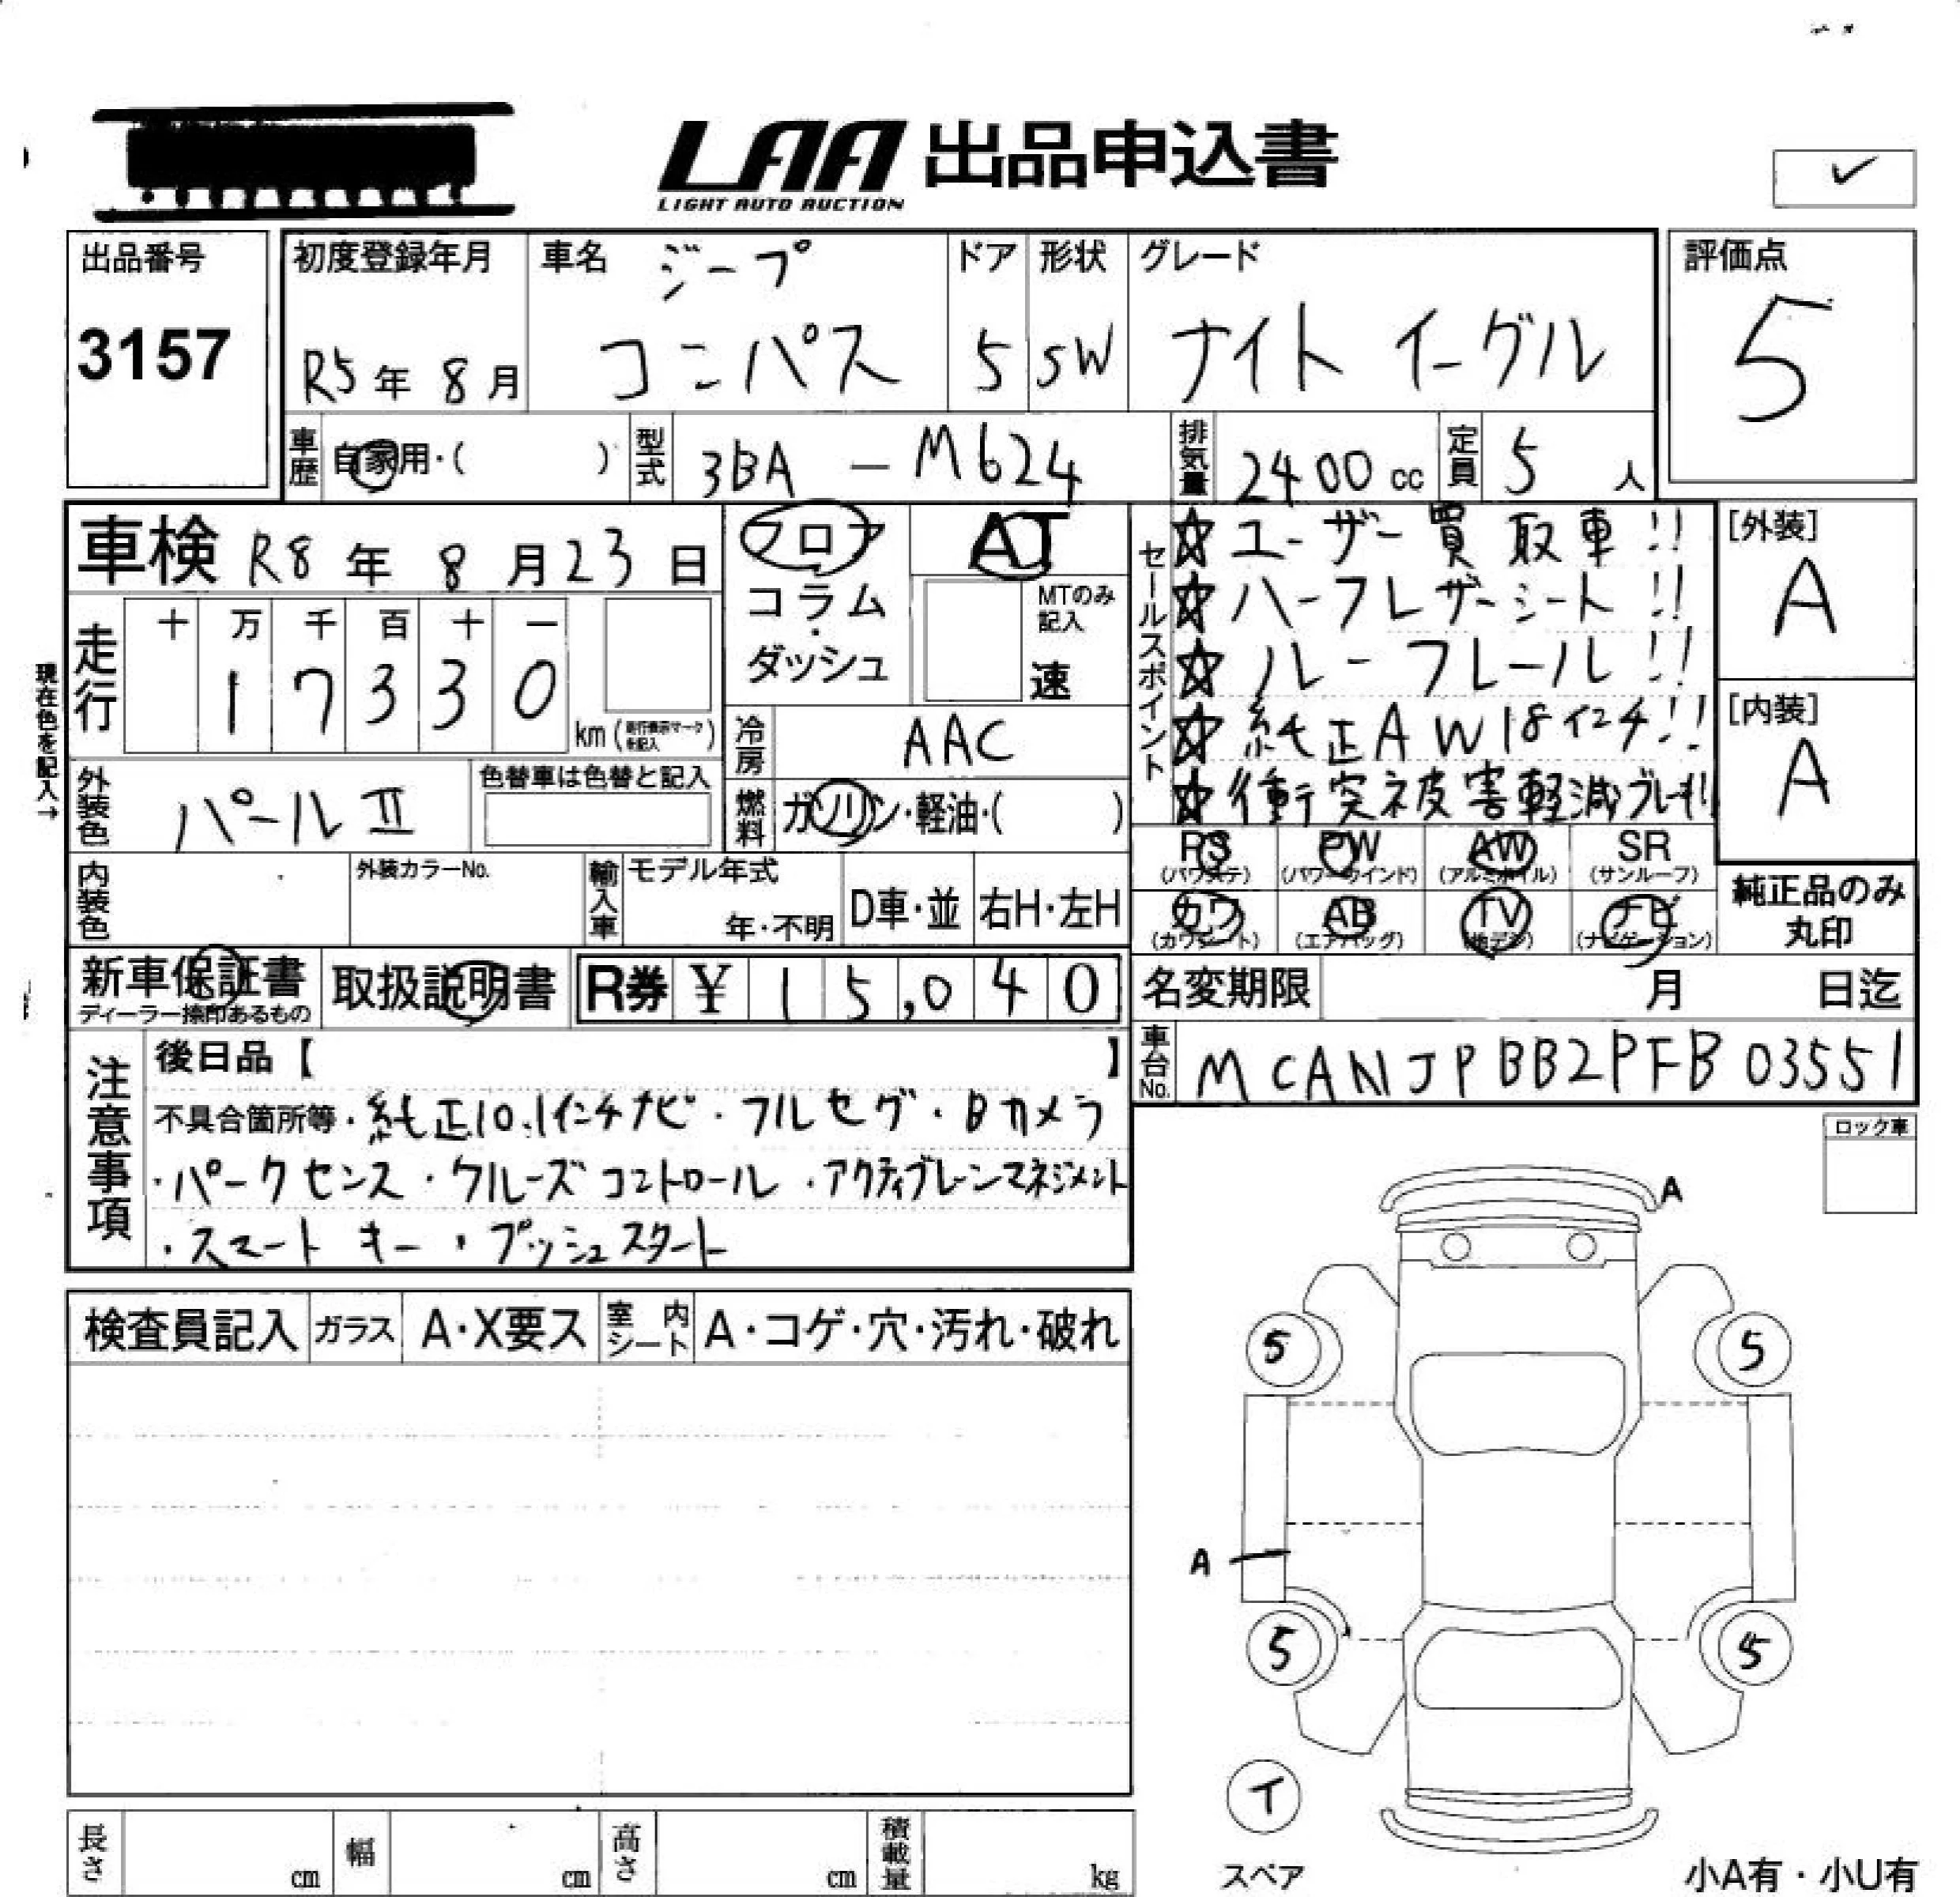 LAA 出品申込書
LIGHT AUTO AUCTION
✓
出品番号
3157
初度登録年月
R5年 8月
車名 ジープ
コンパス
ドア
5
形状
SW
グレード
ナイト イーグル
評価点
5
車歴 自家用・( )
型式 3BA - M624
排気量 2400 cc
定員 5 人
車検 R8年 8月23日
フロア
コラム
・
ダッシュ
AT
MTのみ記入
速
セールスポイント
☆ユーザー買取車!!
☆ハーフレザーシート!!
☆ルーフレール!!
☆純正AW18インチ!!
☆衝突被害軽減ブレーキ!!
[外装]
A
[内装]
A
現在色を記入→
走行
十 万 千 百 十 一
1 7 3 3 0
km (走行表示マークを記入)
冷房 AAC
燃料 ガソリン・軽油・( )
外装色 パールⅡ
色替車は色替と記入
RS (パワステ)
PW (パワーウインド)
AW (アルミホイル)
SR (サンルーフ)
カワ (カワシート)
AB (エアバッグ)
TV (地デジ)
ナビ (ナビゲーション)
純正品のみ
丸印
内装色
外装カラーNo.
輸入車
モデル年式
年・不明
D車・並
右H・左H
新車保証書
ディーラー捺印あるもの
取扱説明書
R券 ¥ 15,040
名変期限 月 日迄
車台No. MCANJPBB2PFB03551
注意事項
後日品【 】
不具合箇所等・純正10.1インチナビ・フルセグ・Bカメラ
・パークセンス・クルーズコントロール・アクティブレーンマネジメント
・スマートキー・プッシュスタート
ロック車
検査員記入
ガラス A・X要ス
室内シート A・コゲ・穴・汚れ・破れ
A
5
5
A
5
5
T
スペア
長さ cm
幅 cm
高さ cm
積載量 kg
小A有・小U有